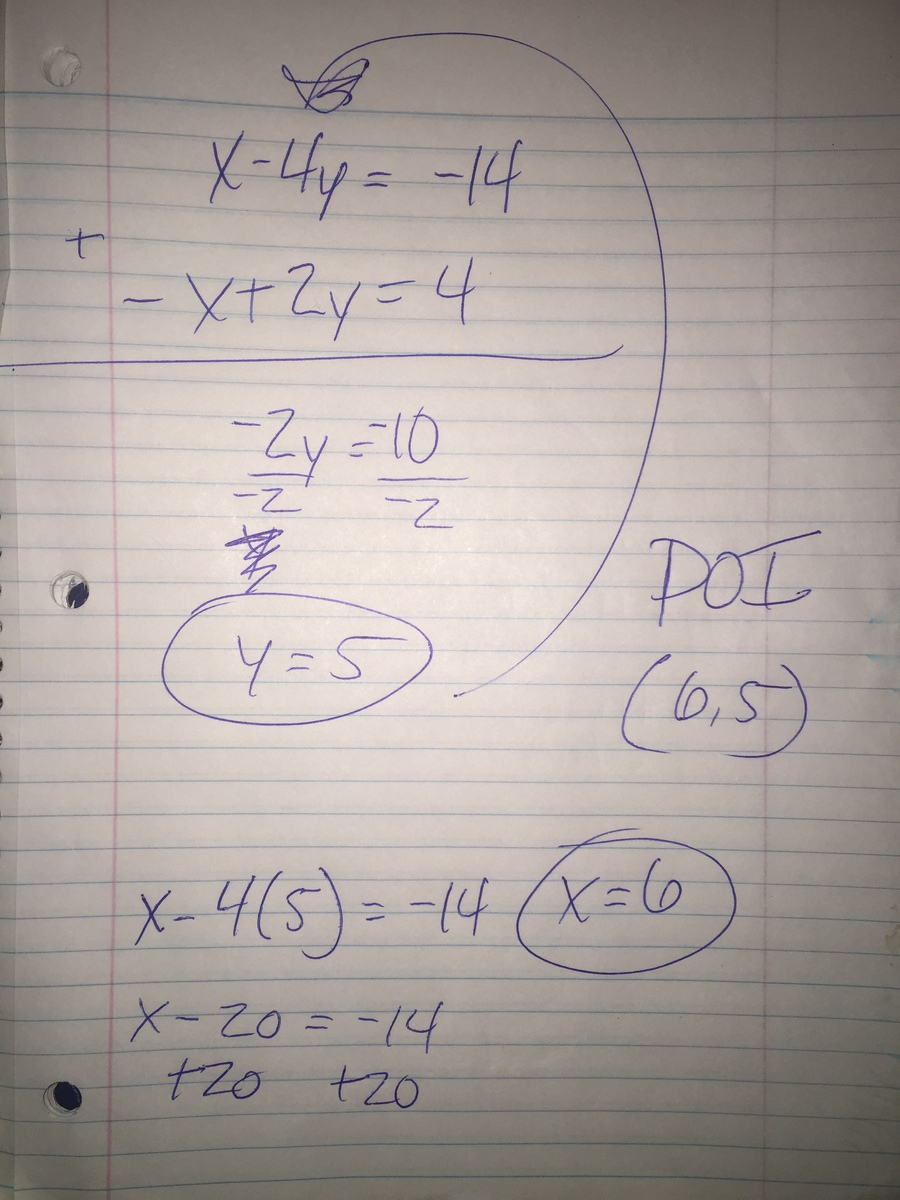 x-4y = -14
+
-x+2y = 4
-2y = -10
-2 -2
y = 5
POI
(6,5)
x-4(5) = -14 x=6
x-20 = -14
+20 +20